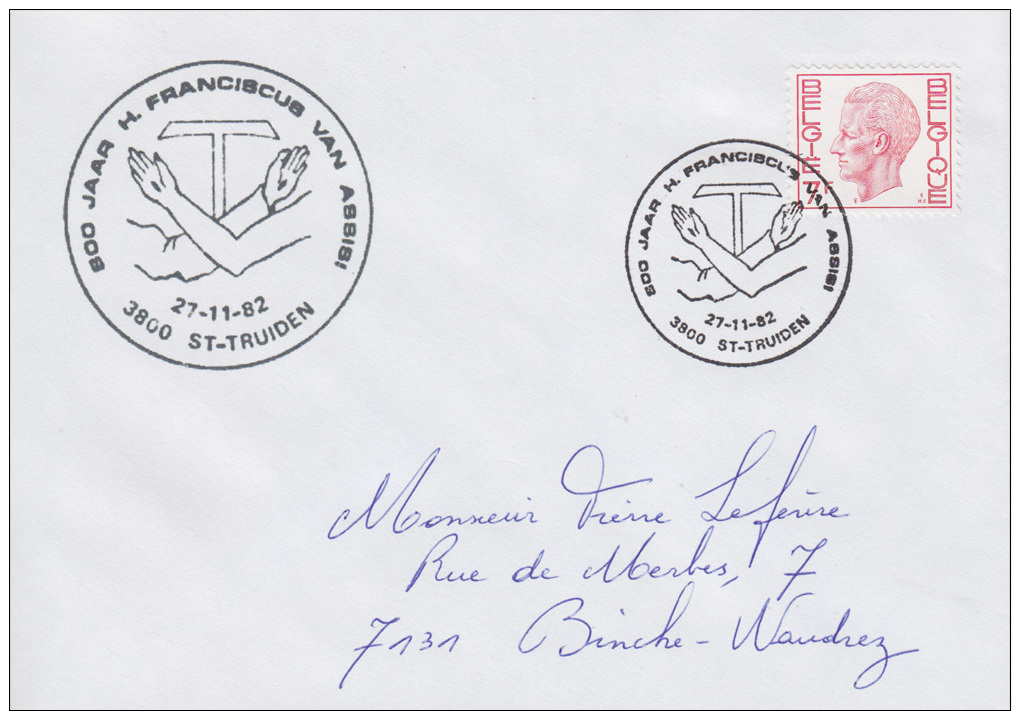 800 JAAR H. FRANCISCUS VAN ASSISI
27-11-82
3800 ST-TRUIDEN
BELGIË BELGIQUE
7F
800 JAAR H. FRANCISCUS VAN ASSISI
27-11-82
3800 ST-TRUIDEN
Monsieur Pierre Lefèvre
Rue de Merbes, 7
7131 Binche-Waudrez